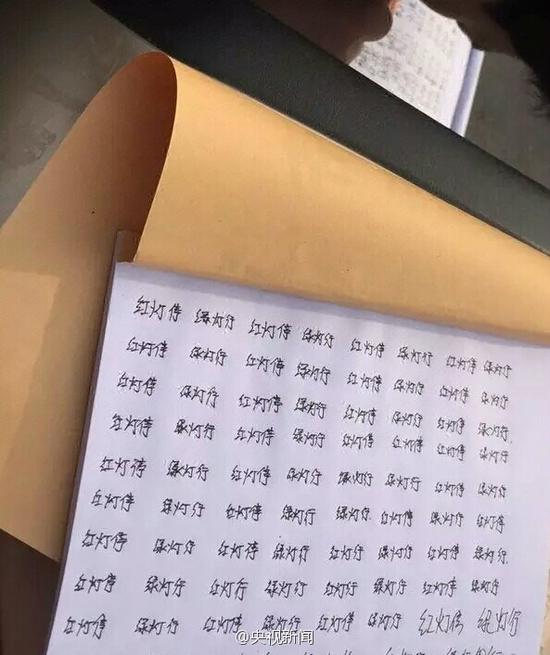 红灯停 绿灯行 红灯停 绿灯行 红灯停 绿灯行 红灯停 绿灯行
红灯停 绿灯行 红灯停 绿灯行 红灯停 绿灯行 红灯停 绿灯行
红灯停 绿灯行 红灯停 绿灯行 红灯停 绿灯行 红灯停 绿灯行.
红灯停 绿灯行 红灯停 绿灯行 红灯停 红灯停 红灯停 绿灯行
红灯停 绿灯行 红灯停 绿灯行 绿灯行 绿灯行 红灯停 绿灯行
红灯停 绿灯行 红灯停 绿灯行 绿灯行. 红灯停 绿灯行 红灯停
红灯停 绿灯行 红灯停 绿灯行 红灯行 红灯停 红灯停 绿灯行.
红灯停 绿灯行 红灯行 绿灯行 红灯行 绿灯行 红灯停 绿灯行
红灯停 绿灯行 红灯停 绿灯行 红灯停 绿灯行 红灯停 绿灯行
@央视新闻